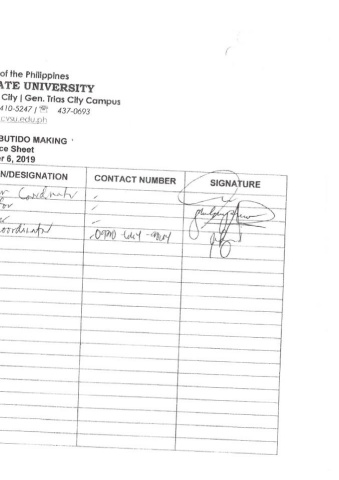 of the Philippines
ATE UNIVERSITY
City | Gen. Trias City Campus
410-5247 / ☏ 437-0693
cvsu.edu.ph
BUTIDO MAKING
ce Sheet
r 6, 2019
N/DESIGNATION CONTACT NUMBER SIGNATURE
r Coordinator
for
er
oordinator